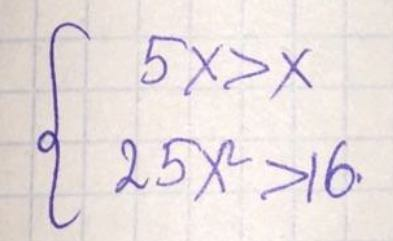 { 5x>x
25x²>16.